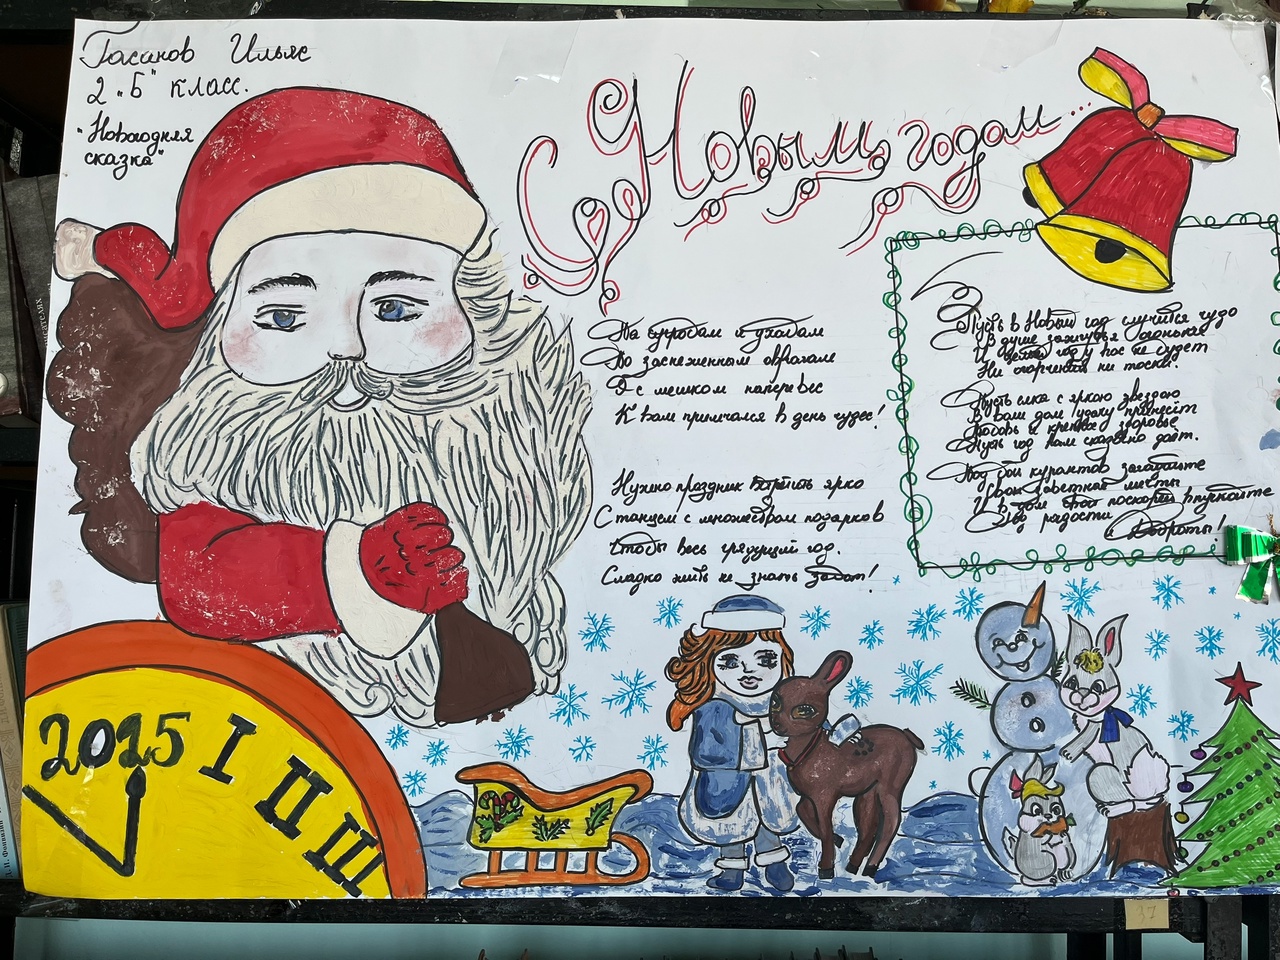 Гасанов Ильяс
2 "Б" класс.
"Новогодняя
сказка"
С Новым годом...
По сугробам и ухабам
По заснеженным оврагам
Я с мешком наперевес
К вам примчался в день чудес!
Нужно праздник встретить ярко
С танцем с множеством подарков
Чтобы весь грядущий год.
Сладко жить не знать забот!
Пусть в Новый год случится чудо
В душе зажгутся огоньки
И целый год у вас не будет
Ни огорчений ни тоски.
Пусть елка с яркою звездою
В ваш дом удачу принесёт
Любовь и крепкое здоровье
Пусть год вам сказочно даёт.
Под бой курантов загадайте
Свои заветные мечты
И в дом свой поскорей впускайте
Год радости и Доброты!
2025
I
II
III
37